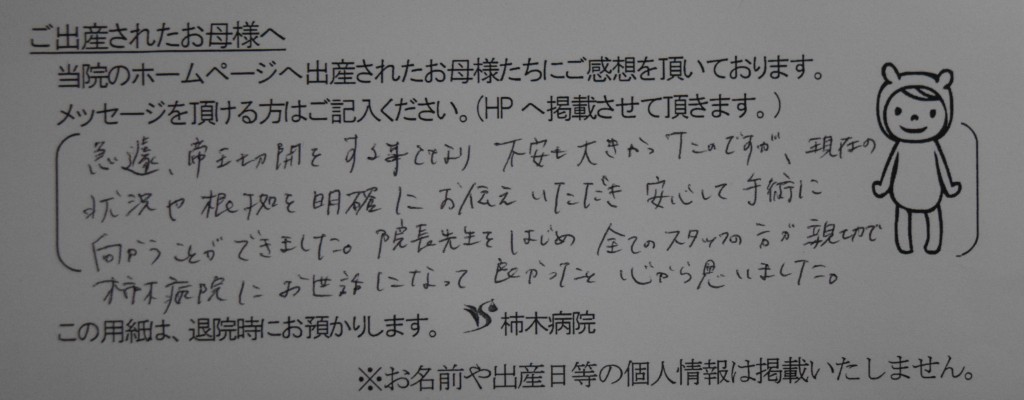 ご出産されたお母様へ
当院のホームページへ出産されたお母様たちにご感想を頂いております。
メッセージを頂ける方はご記入ください。(HPへ掲載させて頂きます。)
急遽、帝王切開をする事となり 不安も大きかったのですが、現在の
状況や根拠を明確にお伝えいただき 安心して手術に
向かうことができました。院長先生をはじめ 全てのスタッフの方が親切で
柿木病院にお世話になって良かったと心から思いました。
この用紙は、退院時にお預かりします。 柿木病院
※お名前や出産日等の個人情報は掲載いたしません。